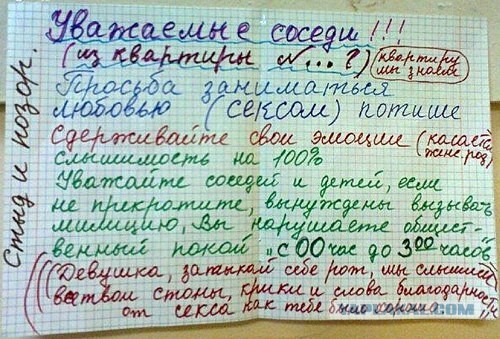 Уважаемые соседи!!!
(из квартиры №...?)
(квартиру мы знаем)
Просьба заниматься
любовью (сексом) потише
Сдерживайте свои эмоции (касается женс.род)
слышимость на 100%
Уважайте соседей и детей, если
не прекратите, вынуждены вызывать
милицию, Вы нарушаете общест-
венный покой „с 00 час до 3 00 часов"
(((Девушка, затыкай себе рот, мы слышим
все твои стоны, крики и слова благодарности
от секса как тебе было хорошо
Стыд и позор.